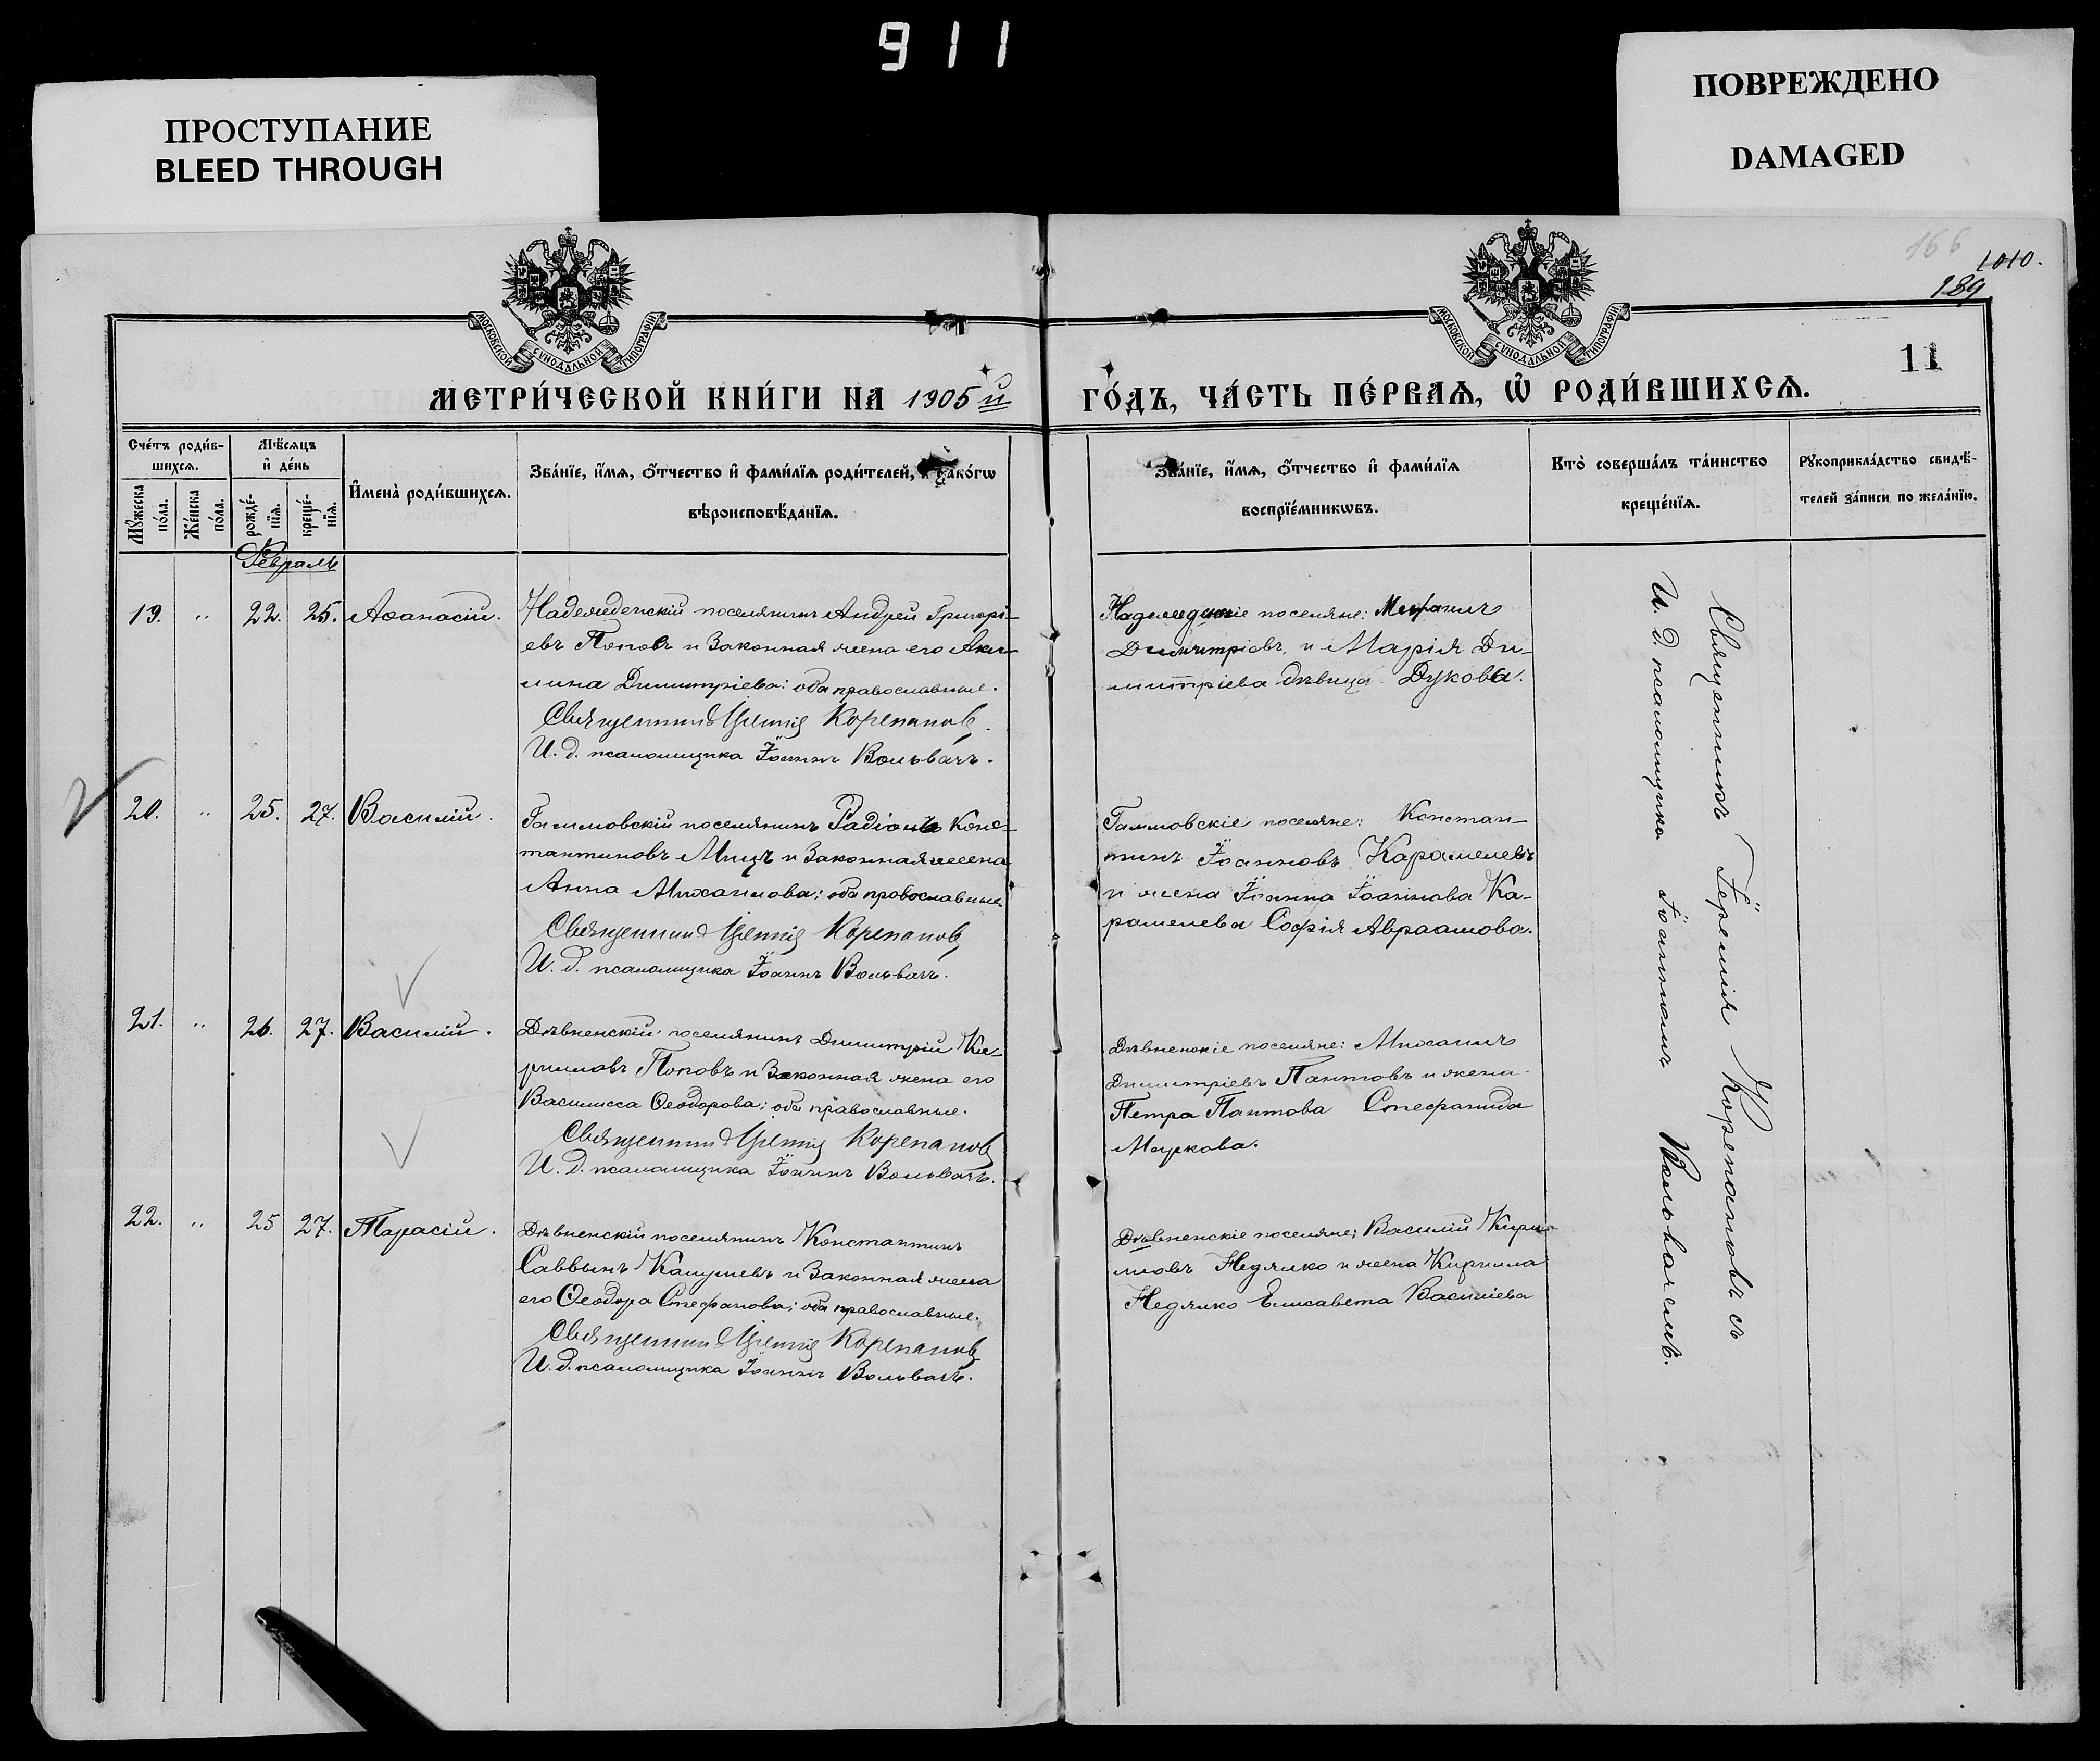 911
ПРОСТУПАНИЕ
BLEED THROUGH
ПОВРЕЖДЕНО
DAMAGED
166
1010.
189
11
МОСКОВСКОЙ СѴНОДАЛЬНОЙ ТИПОГРАФІИ
МОСКОВСКОЙ СѴНОДАЛЬНОЙ ТИПОГРАФІИ
МЕТРИ́ЧЕСКОЙ КНИ́ГИ НА 1905й
ГО́ДЪ, ЧА́СТЬ ПЕ́РВАѦ, Ѡ҆ РОДИ́ВШИХСѦ.
Сче́тъ роди́в-
шихсѧ.
Мꙋ́жеска по́ла.
Же́нска по́ла.
Мѣ́сѧцъ
и҆ де́нь
рожде́-
нїѧ.
креще́-
нїѧ.
И҆мена̀ роди́вшихсѧ.
Зва́нїе, и҆́мѧ, ѻ҆́тчество и҆ фами́лїѧ роди́телей, и҆ како́гѡ
вѣроисповѣ́данїѧ.
Зва́нїе, и҆́мѧ, ѻ҆́тчество и҆ фами́лїѧ
воспрїе́мникѡвъ.
Кто̀ соверша́лъ та́инство
креще́нїѧ.
Рꙋкоприкла́дство свидѣ́-
телей за́писи по жела́нїю.
Февраль
19. " 22. 25. Аѳанасій.
Надеждинскій поселянинъ Андрей Григорі-
евъ Поповъ и законная жена его Аки-
лина Димитріева: оба православные.
Священникъ Іеремія Корепановъ.
И. д. псаломщика Іоаннъ Вольвачъ.
поселяне:
Димитріевъ, и Марія Ди-
митріева дѣвица Дукова.
20. " 25. 27. Василій.
Галиловскій поселянинъ Радіонъ Конс-
тантиновъ Мицъ и законная жена
Анна Михаилова: оба православные.
Священникъ Іеремія Корепановъ
И. д. псаломщика Іоаннъ Вольвачъ.
поселяне: Констан-
тинъ Іоанновъ Карамелевъ
и жена Іоанна Іоаннова Ка-
рамелева Софія Авраамова.
21. " 26. 27. Василій.
Дѣвненскій поселянинъ Димитрій Ки-
рилловъ Поповъ и законная жена его
Василисса Ѳеодорова: оба православные.
Священникъ Іеремія Корепановъ
И. д. псаломщика Іоаннъ Вольвачъ.
Дѣвненскіе поселяне: Михаилъ
Димитріевъ Пантовъ и жена
Петра Пантова Стефанида
Маркова.
22. " 25 27. Тарасій.
Дѣвненскій поселянинъ Константинъ
Саввинъ и законная жена
его Ѳеодора Стефанова: оба православные.
Священникъ Іеремія Корепановъ
И. д. псаломщика Іоаннъ Вольвачъ.
Дѣвненскіе поселяне: Василій Кири-
ловъ Недялко и жена Кирилла
Недялко Елисавета Василіева
Священникъ Іеремія Корепановъ съ
И. д. псаломщика Іоанномъ Вольвачемъ.